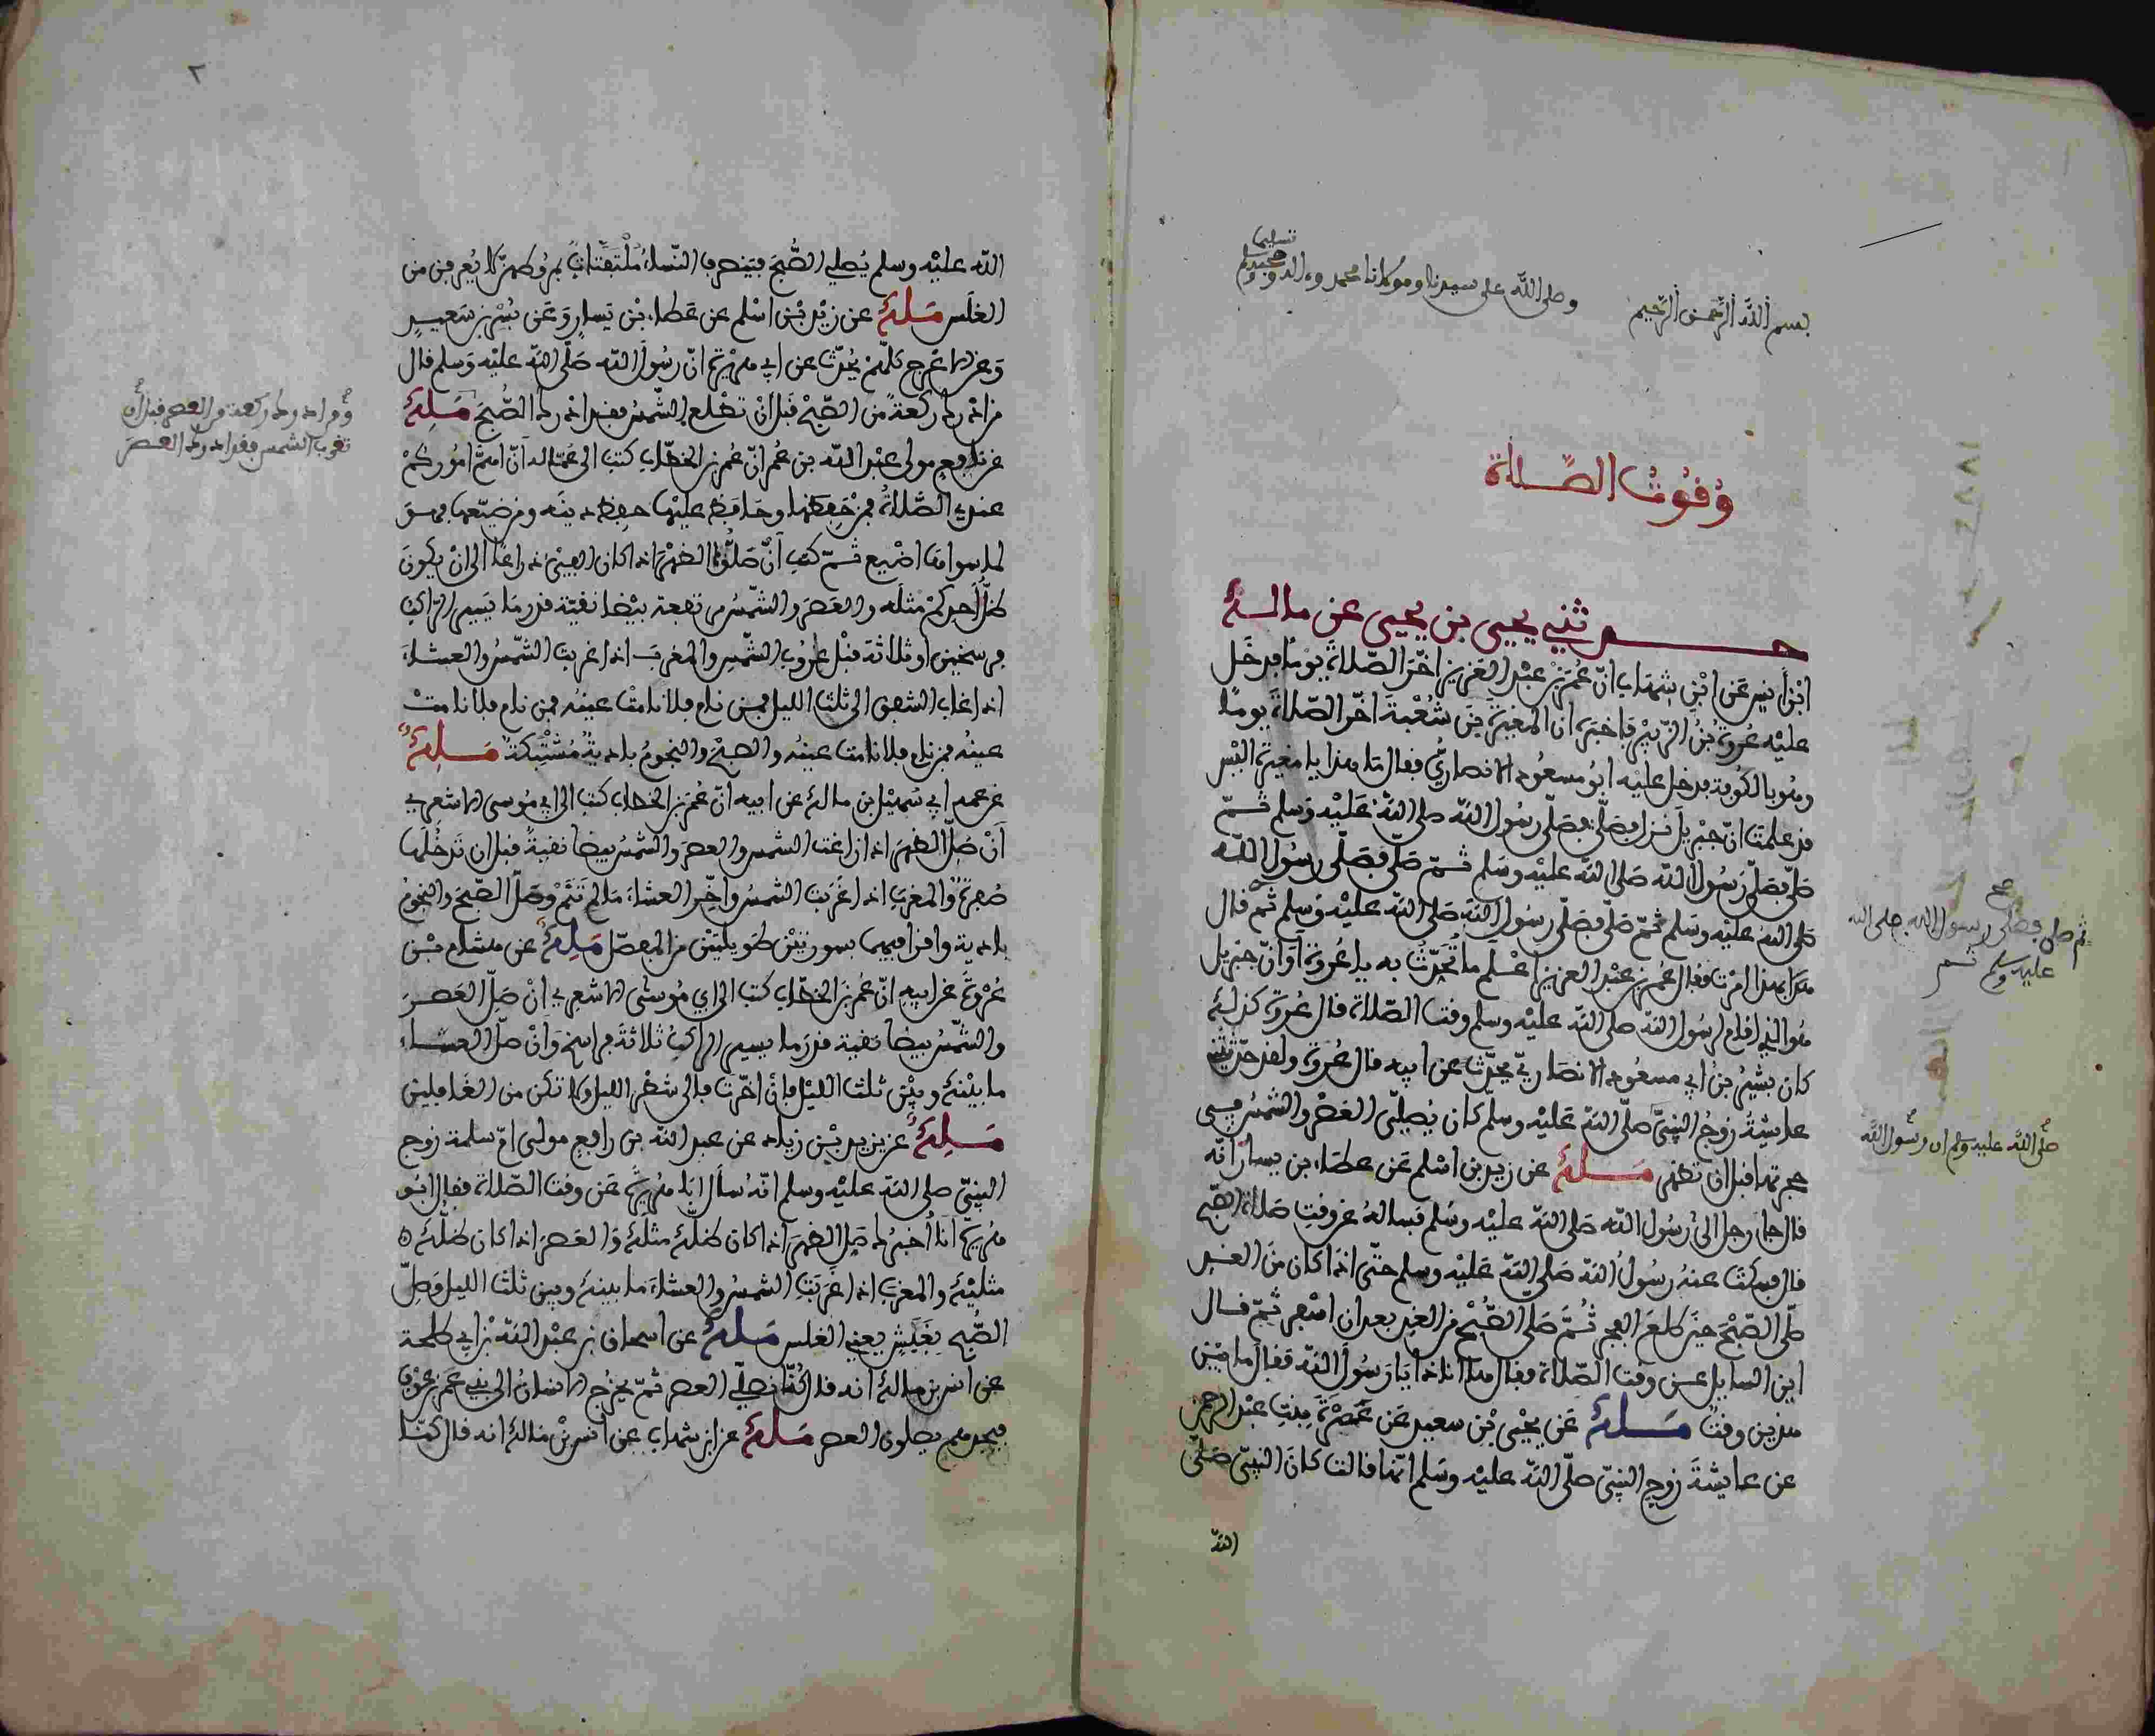 بسم الله الرحمن الرحيم وصلى الله على سيدنا ومولانا محمد وءاله وصحبه وسلم تسليما
وُقُوتُ الصَّلاة
حدثني يحيى بن يحيى عن مالك
ابن أنس عن ابن شهاب ان عمر بن عبد العزيز اخر الصلاة يوما فدخل
عليه عروة بن الزبير فاخبره ان المغيرة بن شعبة اخر الصلاة يوما
وهو بالكوفة فدخل عليه ابو مسعود الانصاري فقال ما هذا يا مغيرة اليس
قد علمت ان جبريل نزل فصلى فصلى رسول الله صلى الله عليه وسلم ثم
صلى فصلى رسول الله صلى الله عليه وسلم ثم صلى فصلى رسول الله
صلى الله عليه وسلم ثم صلى فصلى رسول الله صلى الله عليه وسلم ثم قال
بهذا امرت فقال عمر بن عبد العزيز اعلم ما تحدث به يا عروة أو ان جبريل
هو الذي اقام لرسول الله صلى الله عليه وسلم وقت الصلاة قال عروة كذلك
كان بشير بن ابي مسعود الانصاري يحدث عن ابيه قال عروة ولقد حدثتني
عايشة زوج النبي صلى الله عليه وسلم كان يصلي العصر والشمس في
حجرتها قبل ان تظهر مالك عن زيد بن اسلم عن عطاء بن يسار انه
قال جاء رجل الى رسول الله صلى الله عليه وسلم فساله عن وقت صلاة الصبح
قال فسكت عنه رسول الله صلى الله عليه وسلم حتى اذا كان من الغد
صلى الصبح حين طلع الفجر ثم صلى الصبح من الغد بعد ان اسفر ثم قال
اين السايل عن وقت الصلاة فقال هاانا ذا يا رسول الله فقال ما بين
هذين وقت مالك عن يحيى بن سعيد عن عمرة بنت عبد الرحمن
عن عايشة زوج النبي صلى الله عليه وسلم انها قالت كان النبي صلى
الله
صح
ثم صلى فصلى رسول الله صلى الله
عليه وسلم ثم
صلى الله عليه وسلم ان رسول الله
٢
الله عليه وسلم يصلي الصبح فينصرف النساء متلفعات بمروطهن لا يعرفن من
الغلس مالك عن زيد بن اسلم عن عطاء بن يسار وعن بسر بن سعيد
وعن الاعرج كلهم يحدث عن ابي هريرة ان رسول الله صلى الله عليه وسلم قال
من ادرك ركعة من الصبح قبل ان تطلع الشمس فقد ادرك الصبح مالك
عن نافع مولى عبد الله بن عمر ان عمر بن الخطاب كتب الى عماله ان اهم اموركم
عندي الصلاة فمن حفظها وحافظ عليها حفظ دينه ومن ضيعها فهو
لما سواها اضيع ثم كتب ان صلوا الظهر اذا كان الفيء ذراعا الى ان يكون
ظل احدكم مثله والعصر والشمس مرتفعة بيضا نقية قدر ما يسير الراكب
فرسخين او ثلاثة قبل غروب الشمس والمغرب اذا غربت الشمس والعشاء
اذا غاب الشفق الى ثلث الليل فمن نام فلا نامت عينه فمن نام فلا نامت
عينه فمن نام فلا نامت عينه والصبح والنجوم بادية مشتبكة مالك
عن عمه ابي سهيل بن مالك عن ابيه ان عمر بن الخطاب كتب الى ابي موسى الاشعري
ان صل الظهر اذا زاغت الشمس والعصر والشمس بيضا نقية قبل ان تدخلها
صفرة والمغرب اذا غربت الشمس واخر العشاء ما لم تنم وصل الصبح والنجوم
بادية واقرا فيها بسورتين طويلتين من المفصل مالك عن هشام بن
عروة عن ابيه ان عمر بن الخطاب كتب الى ابي موسى الاشعري ان صل العصر
والشمس بيضا نقية قدر ما يسير الراكب ثلاثة فراسخ وان صل العشاء
ما بينك وبين ثلث الليل فان اخرت فالى شطر الليل ولا تكن من الغافلين
مالك عن يزيد بن زياد عن عبد الله بن رافع مولى ام سلمة زوج
النبي صلى الله عليه وسلم انه سال ابا هريرة عن وقت الصلاة فقال ابو
هريرة انا اخبرك صل الظهر اذا كان ظلك مثلك والعصر اذا كان ظلك
مثليك والمغرب اذا غربت الشمس والعشاء ما بينك وبين ثلث الليل وصل
الصبح بغبش يعني الغلس مالك عن اسحاق بن عبد الله بن ابي طلحة
عن انس بن مالك انه قال كنا نصلي العصر ثم يخرج الانسان الى بني عمرو بن عوف
فيجدهم يصلون العصر مالك عن ابن شهاب عن انس بن مالك انه قال كنا
ومن ادرك ركعة من العصر قبل ان
تغرب الشمس فقد ادرك العصر